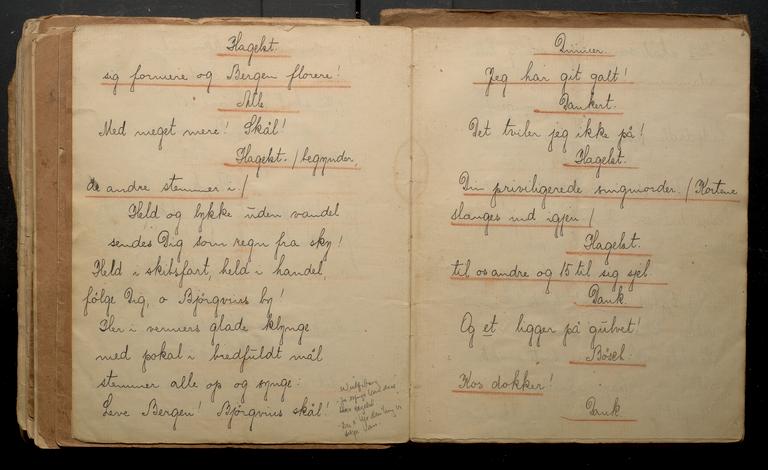 Hagelst.
sig formere og Bergen florere!
Alle
Med meget mere! Skål!
Hagelst. / begynder,
de andre stemmer i. /
Held og lykke uden vandel
sendes Dig som regn fra sky!
Held i skibsfart, held i handel,
følge Dig, o Bjørgvins by!
Her i venners glade klynge
med pokal i bredfuldt mål
stemmer alle op og synge:
Leve Bergen! Bjørgvins skål!
Jeg har git galt!
Dankert.
Det tviler jeg ikke på!
Hagelst.
Din priviligerede snigmorder. / Kortene
slænges ind igjen. /
Hagelst.
til os andre og 15 til sig sjel.
Dank.
Og et ligger på gulvet!
Bösch.
Hos dokker!
Dank.